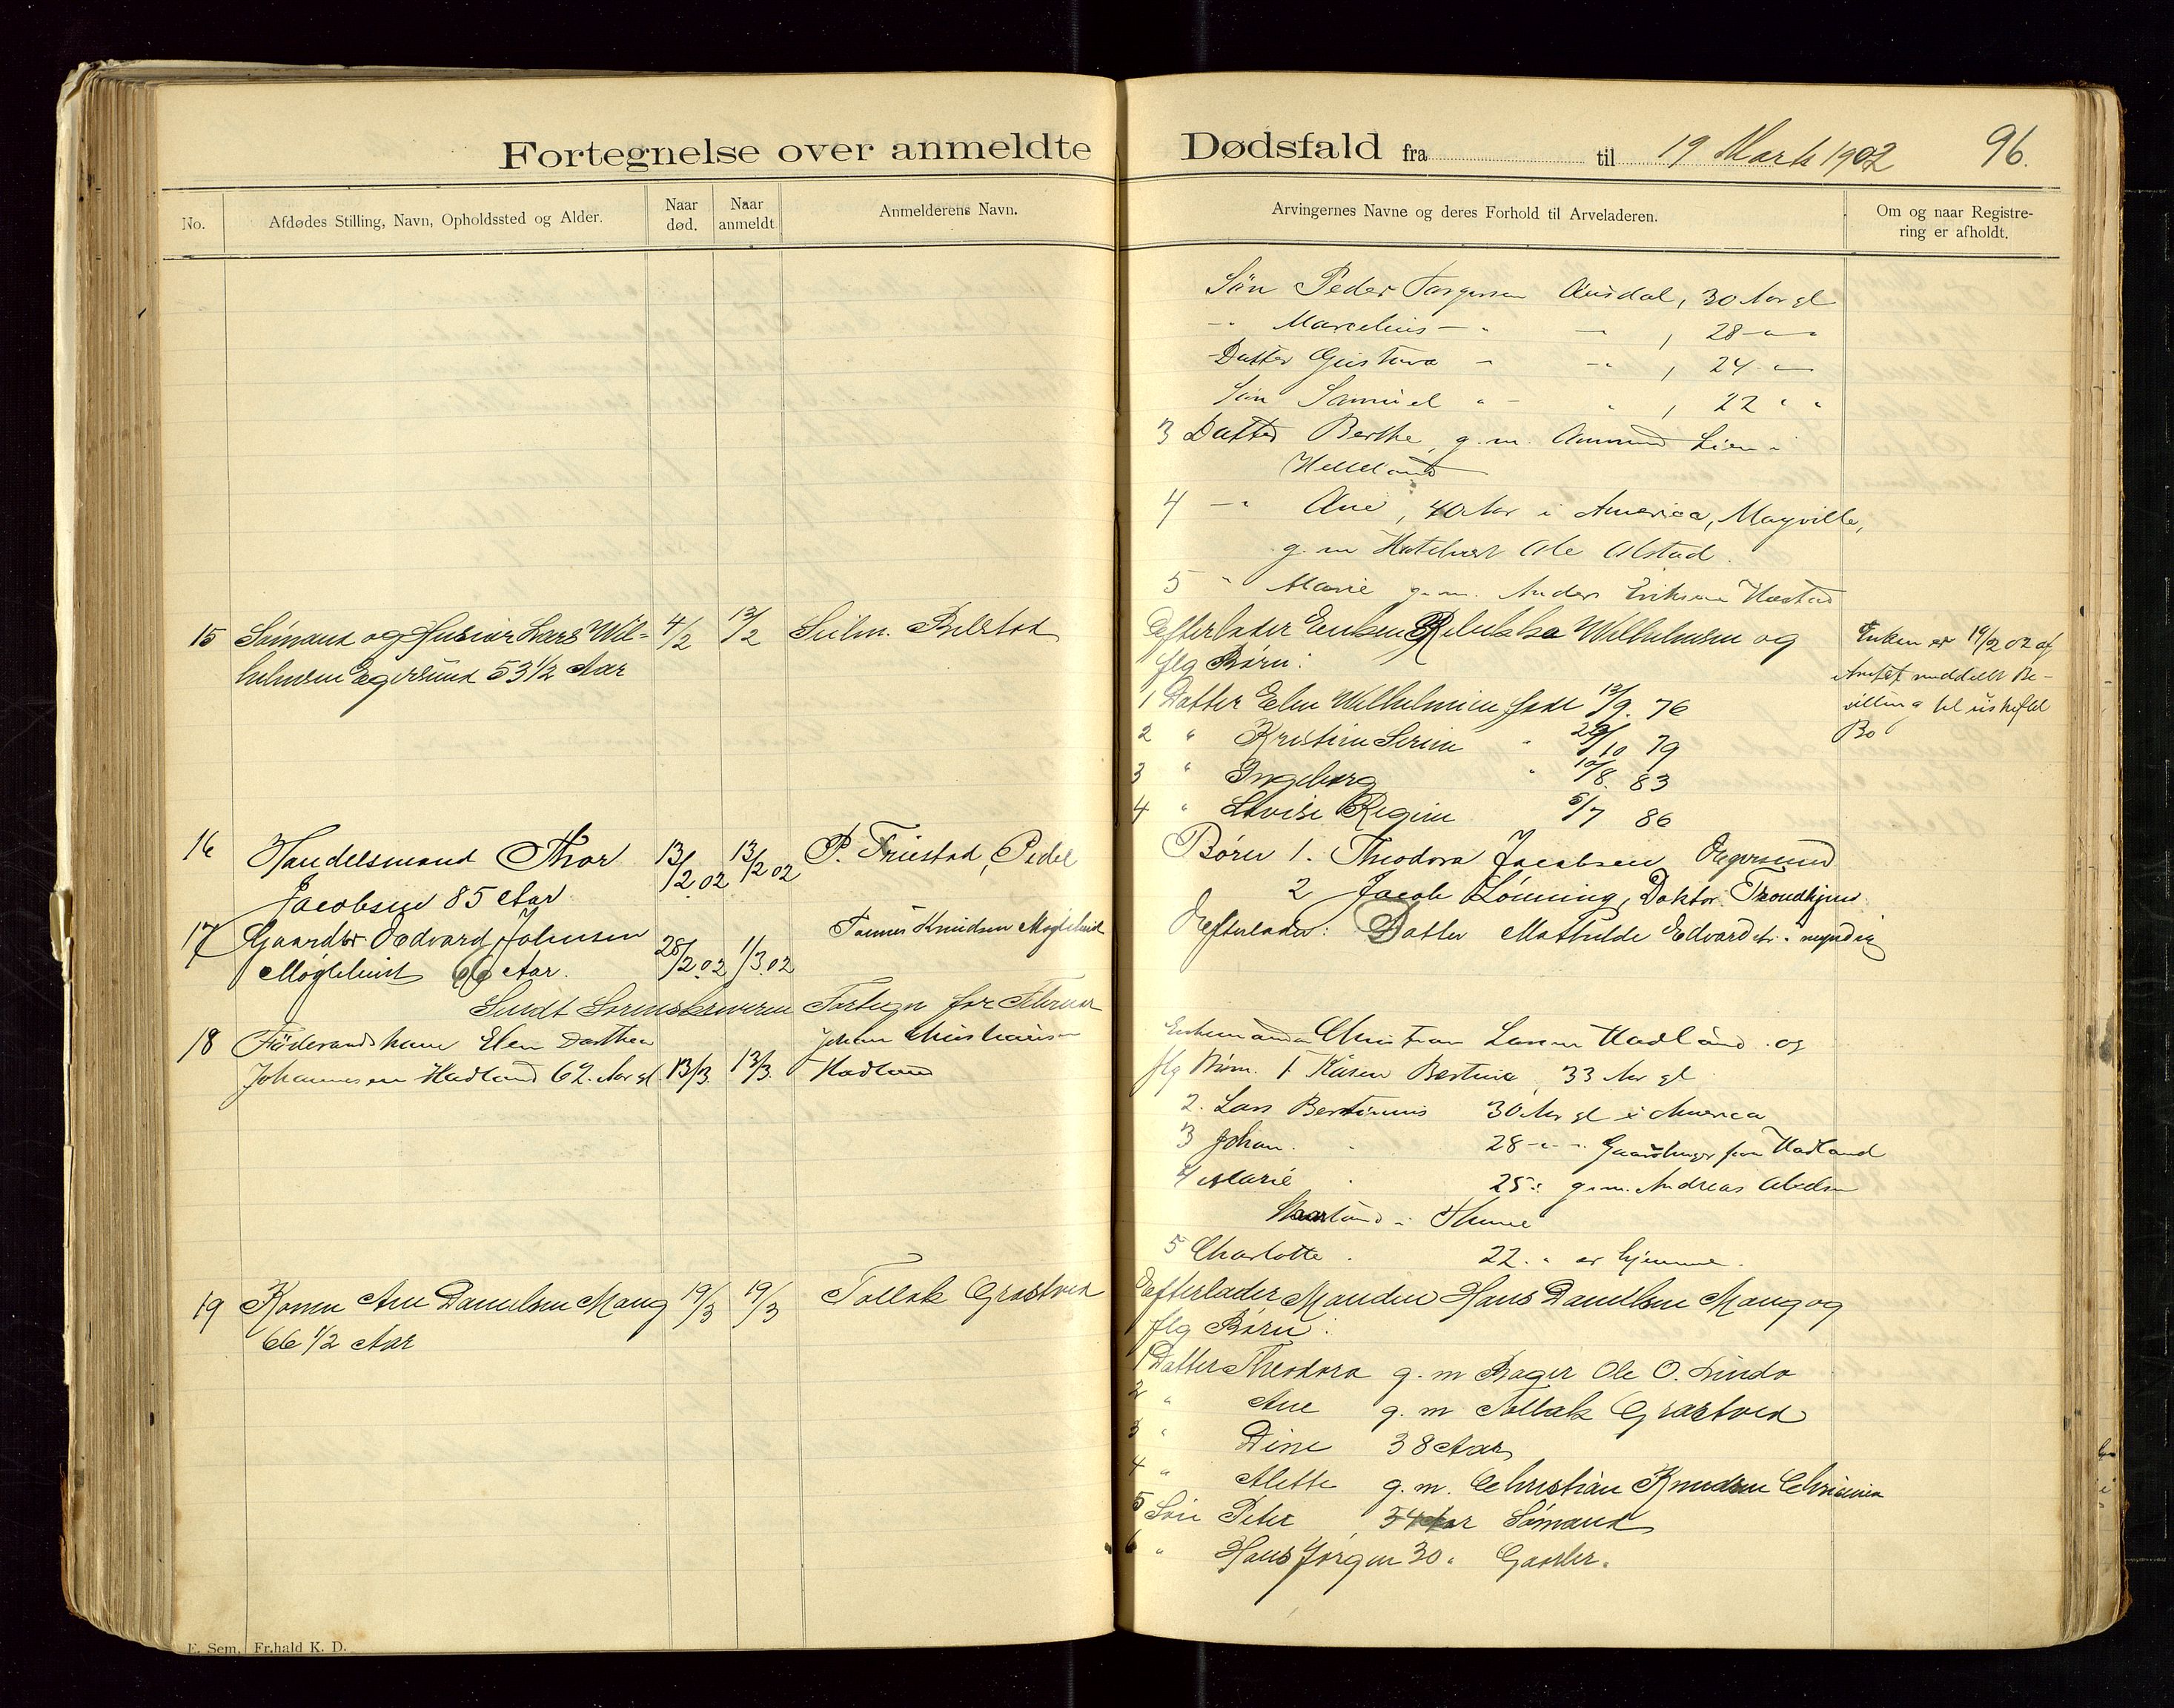 Fortegnelse over anmeldte Dødsfald fra til 19 Marts 1902 96.
No. Afdødes Stilling, Navn, Opholdssted og Alder. Naar død. Naar anmeldt Anmelderens Navn. Arvingernes Navne og deres Forhold til Arveladeren. Om og naar Registrering er afholdt.
Søn Peder Torgersen 30 Aar gl
-" Marcelius -" -" , 28 -"-
Datter Gustava - -" , 24 -"-
Søn Samuel " - " , 22 " "
3 Datter Berthe, g.m. Aanund Lien i
Helleland
4 -" Ane, 40 Aar i America, Mayville,
g.m Hotelvert Ole Alstad.
5 " Marie g.m. Anders Eriksen
15 Sømand og Husier Lars Wil=
helmsen Egersund 53 1/2 Aar
4/2 12/2
Efterlader Enken Rebekka Wilhelmsen og
flg Børn:
1 Datter Elen Wilhelmine født 12/9. 76
2 " Kristine Serine " 10 79
3 " Ingeborg " 10/8. 83
4 " Lovise Regine 5/7 86
Enken er 19/2 02 af
Amtet meddelt Be-
villing til uskiftet
Bo
16 Handelsmand Thor
Jacobsen 85 Aar
13/2 02 13/2 02 P. Friestad, Pedel
Børn 1. Theodora Jacobsen Egersund
2 Jacob Lønning, Doktor Trondhjem.
17 Gaardbr. Edvard Johnsen
Møgletveit 66 Aar.
28/2 02 1/3.02 Tønnes Knudsen Møgletveit
Efterlader: Datter Mathilde Edvardsd. myndig
Sendt Sorenskriveren Fortegn for Februar
18 Føderaadskone Elen Dorthea
Johannesen Hadland 62 Aar gl.
13/3. 13/3. Johan Christiansen
Hadland
Enkemanden Christian Larsen Hadland og
flg Børn. 1 Karen Bertine, 33 Aar gl
2. Lars Bertinius 30 Aar gl i America
3 Johan. " 28 -"- Gaardbruger paa Hadland
4 Marie " 25 " g.m. Andreas Abelsen
i
5 Charlotte. 22. " er hjemme.
19 Konen Ane Danielsen Maug
66 1/2 Aar
19/3 19/3 Tollak Grastved
Efterlader Manden Hans Danielsen Maug og
flg Børn:
1 Datter Theodora g.m Bager Ole O. Lindø
2 " Ane g.m Tollak Grastved
3 " Dine 38 Aar
4 " Alette g.m. Christian Knudsen Christiania
5 Søn Peter 34 Aar Sømand
6 " Hans Jørgen 30 "
E. Sem, Fr.hald K. D.